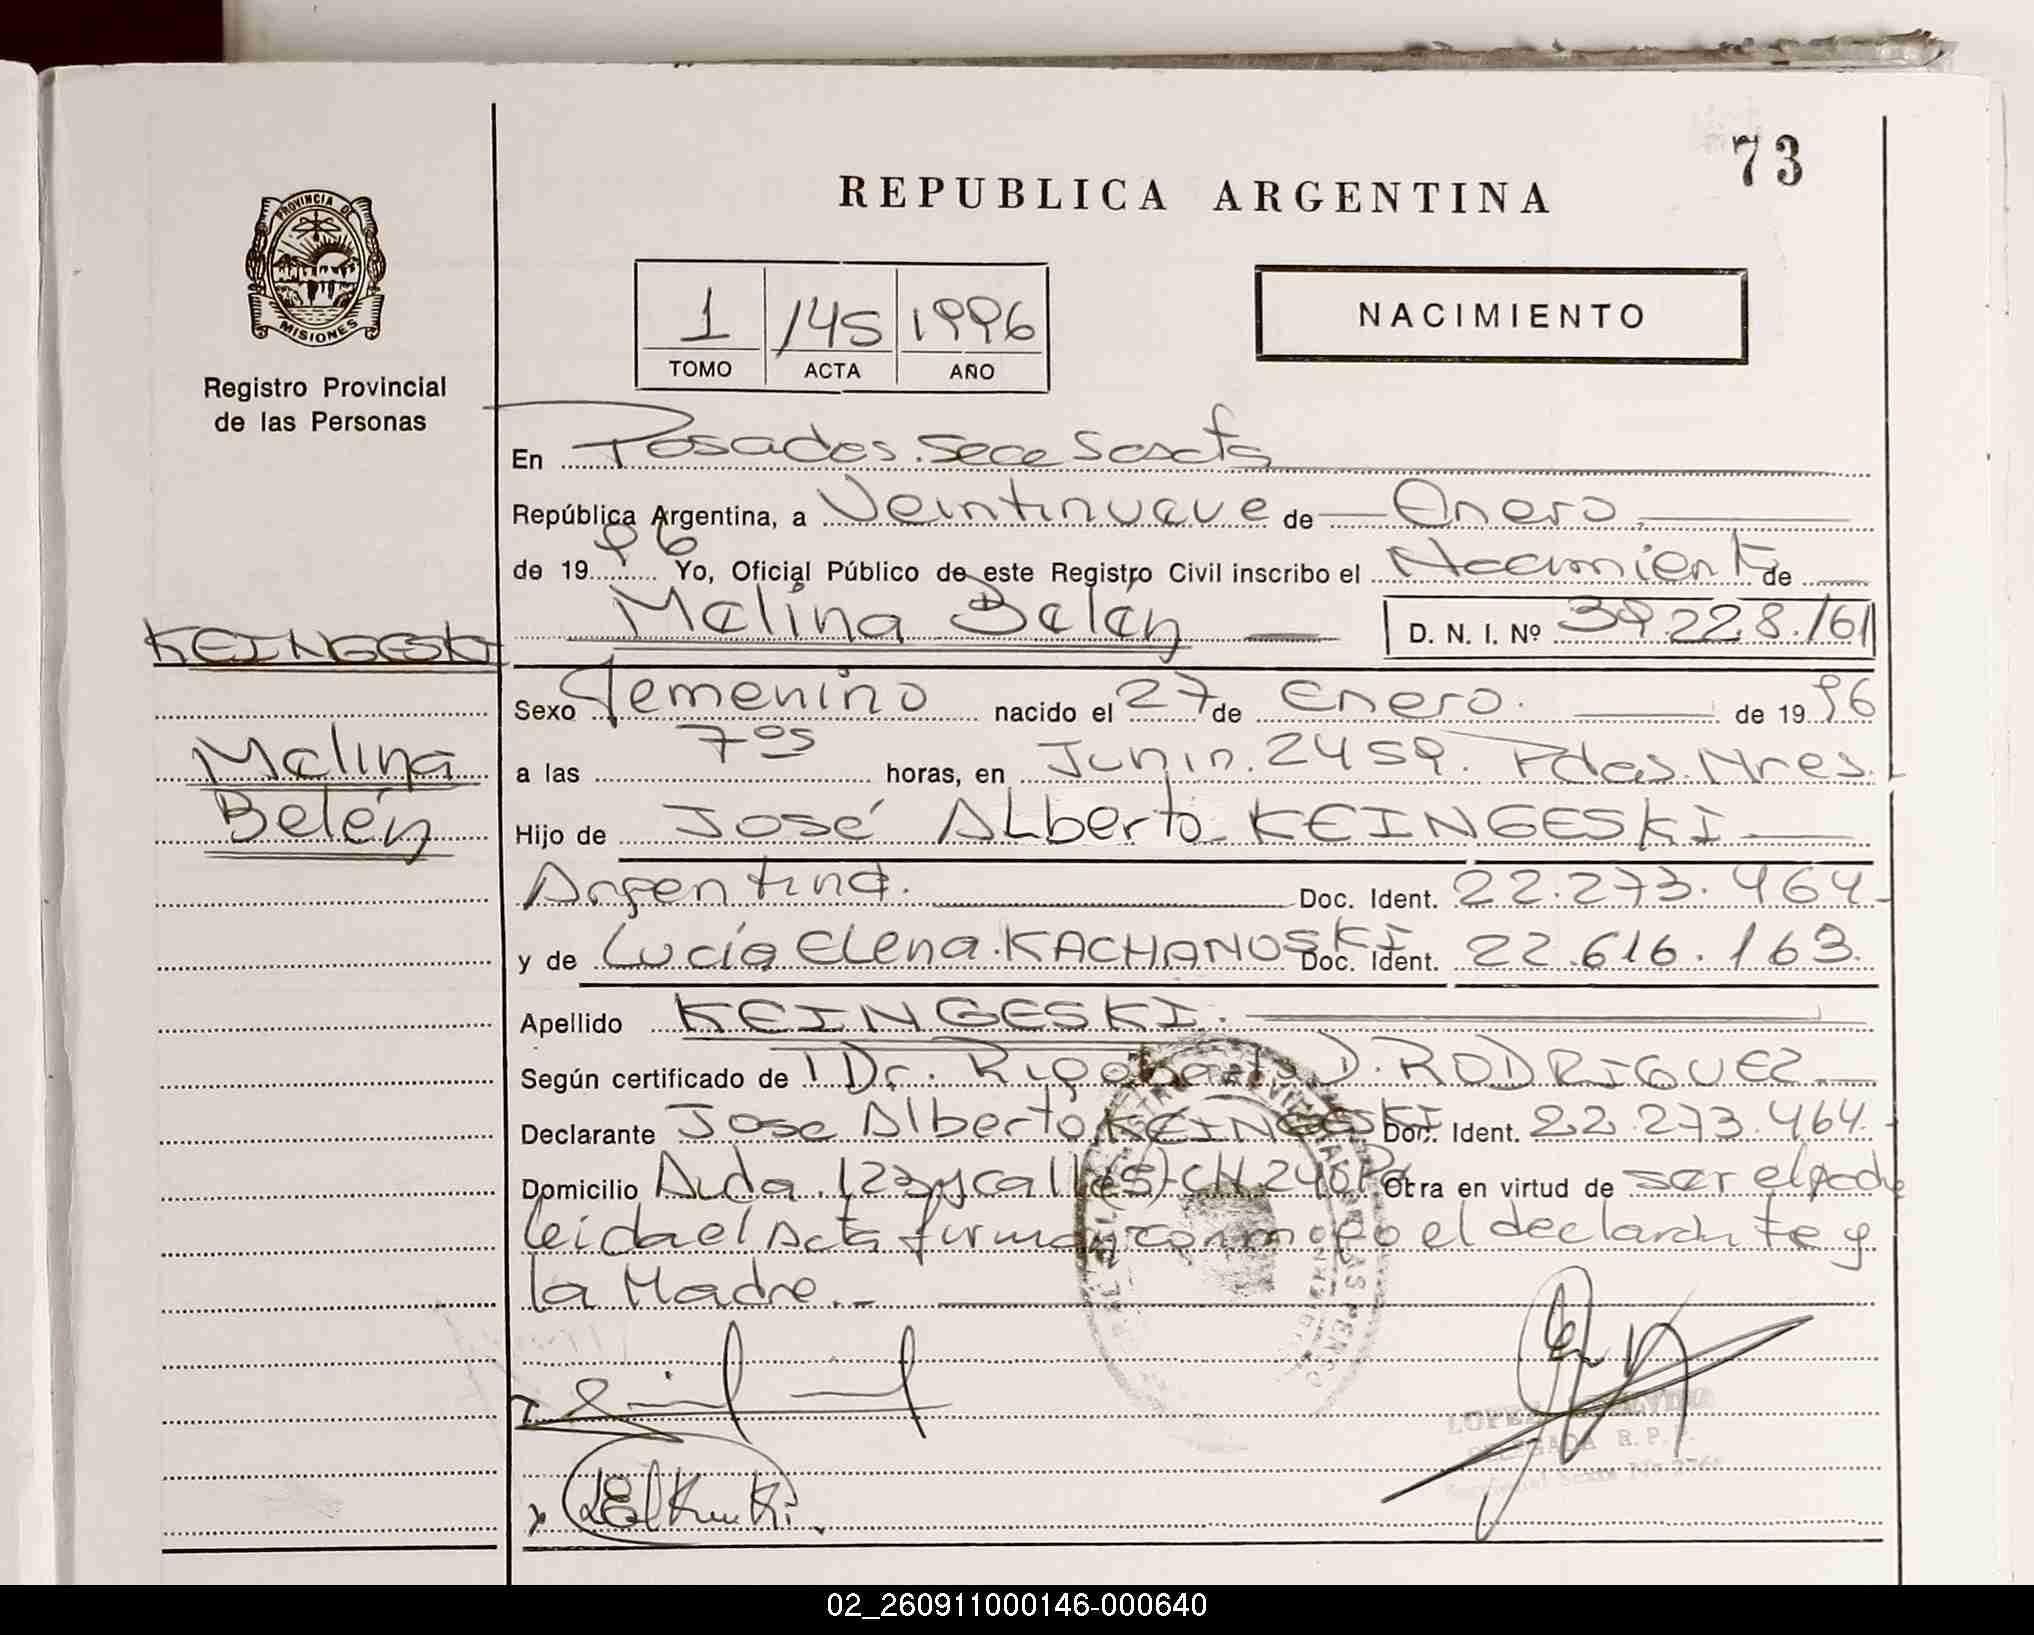 73
REPUBLICA ARGENTINA
PROVINCIA DE
MISIONES
Registro Provincial
de las Personas
1 145 1996
TOMO ACTA AÑO
NACIMIENTO
En Posadas. Secc Sexta
República Argentina, a Veintinueve de Enero.
de 1996 Yo, Oficial Público de este Registro Civil inscribo el Nacimiento de
Melina Belén D. N. I. Nº 39.228.161
KEINGESKI
Melina
Belén
Sexo Femenino nacido el 27 de Enero. de 1996
a las 7os horas, en Junin. 2459. Pdas. Mnes.
Hijo de José Alberto KEINGESKI
Argentina. Doc. Ident. 22.273.464
y de Lucía Elena. KACHANOSKI Doc. Ident. 22.616.163.
Apellido KEINGESKI.
Según certificado de Dr. Rigoberto D. RODRIGUEZ
Declarante Jose Alberto KEINGESKI Doc. Ident. 22.273.464.
Domicilio Avda. 123 y calle (S)-CH 240 Otra en virtud de ser el padre
leida el Acta firman conmigo el declarante y
la Madre.-
LOPEZ
DELEGADA R. P. P.
02_260911000146-000640